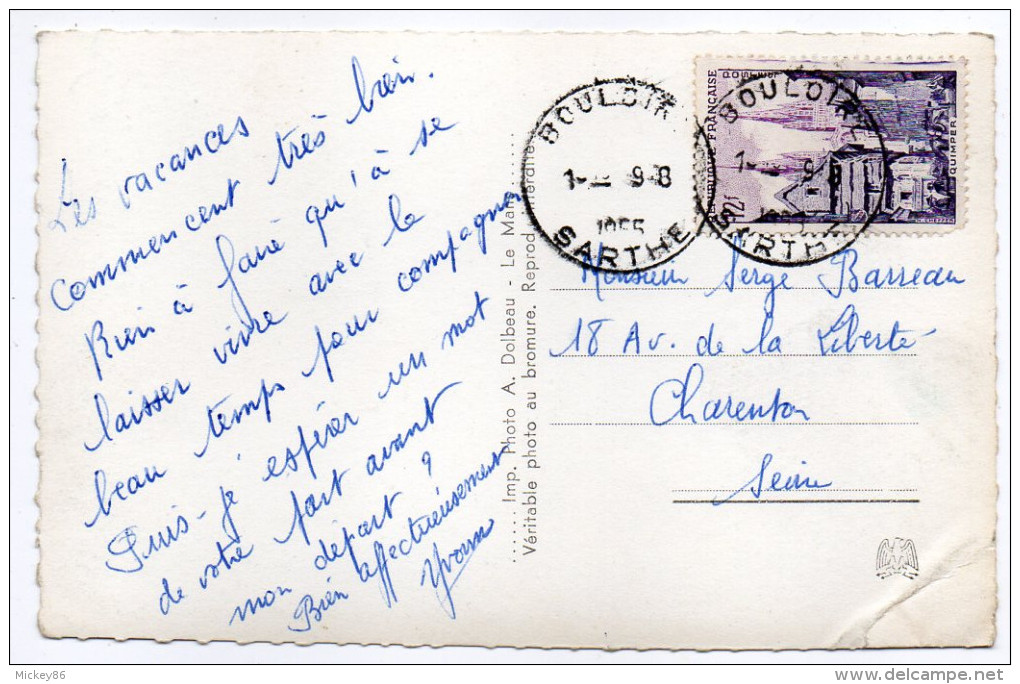 Les vacances
commencent très bien.
Rien à faire qu'à se
laisser vivre avec le
beau temps pour compagnon
Puis-je espérer un mot
de votre part avant
mon départ ?
Bien affectueusement
Yvonne
Imp. Photo A. Dolbeau - Le Mans
Véritable photo au bromure. Reprod. interdite
BOULOIRE
1955
SARTHE
BOULOIRE
SARTHE
RÉPUBLIQUE FRANÇAISE
POSTES
12F
QUIMPER
Monsieur Serge Barreau
18 Av. de la Liberté
Charenton
Seine
Mickey86
delcampe.net